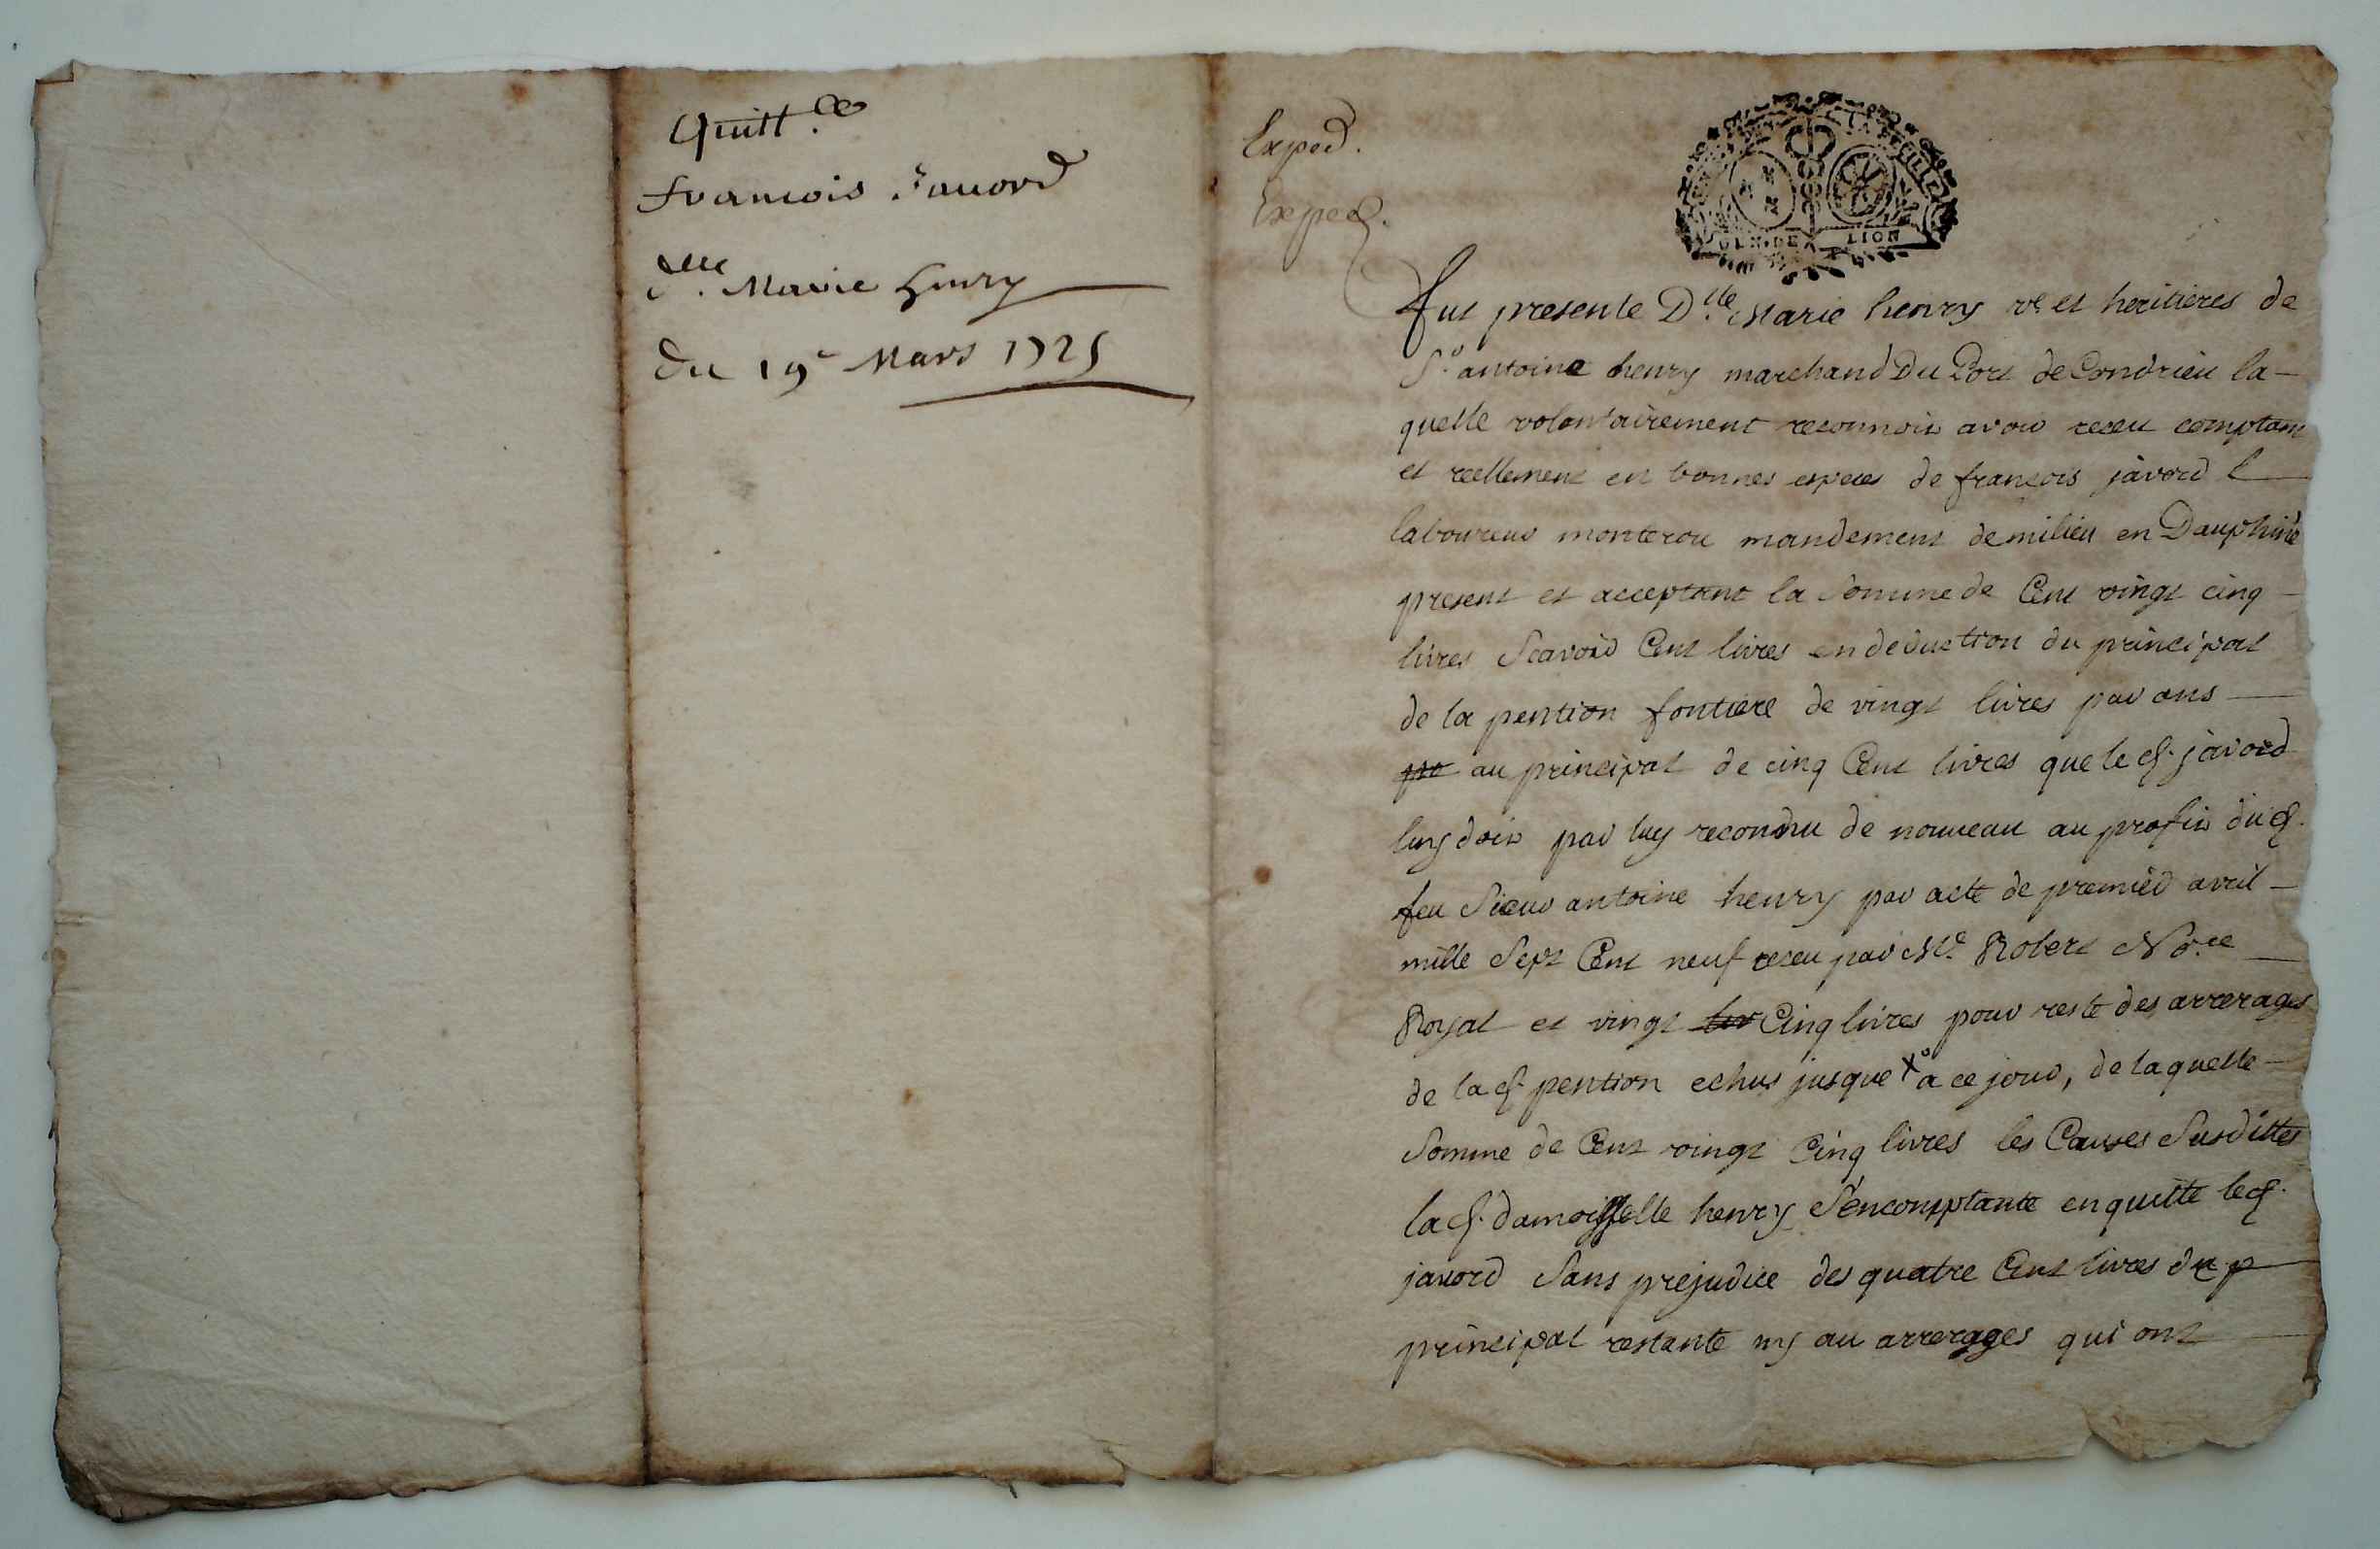 Quitt.ce
francois Jauord
d.lle Marie henry
du 19e Mars 1725
Exped.
Exped.
GEN. DE LION
fut presente D.lle Marie henry ve et heritieres de
Sr. antoine henry marchand Du Port de Condrieu la-
quelle volontairement reconnoit avoir receu comptant
et reellement en bonnes especes de françois javord l
laboureur monterou mandement de milieu en Dauphiné
present et acceptant la Somme de Cent vingt cinq
livres Scavoir Cent livres en deduction du principal
de la pention fontiere de vingt livres par ans
pr au principal de cinq Cent livres que le d. javord
luy doit par luy reconnu de nouveau au profit du d.
feu Sieur antoine henry par acte de premier avril
mille Sept Cent neuf receu par Me. Robert No.re
Royal et vingt liv Cinq livres pour reste des arrerages
de la d. pention echus jusque a ce jour, de laquelle
Somme de Cent vingt Cinq livres les Causes Susdittes
la d. damoisselle henry S'encomptante en quitte le d.
javord Sans prejudice des quatre Cent livres du p
principal restante ny au arrerages qui ont